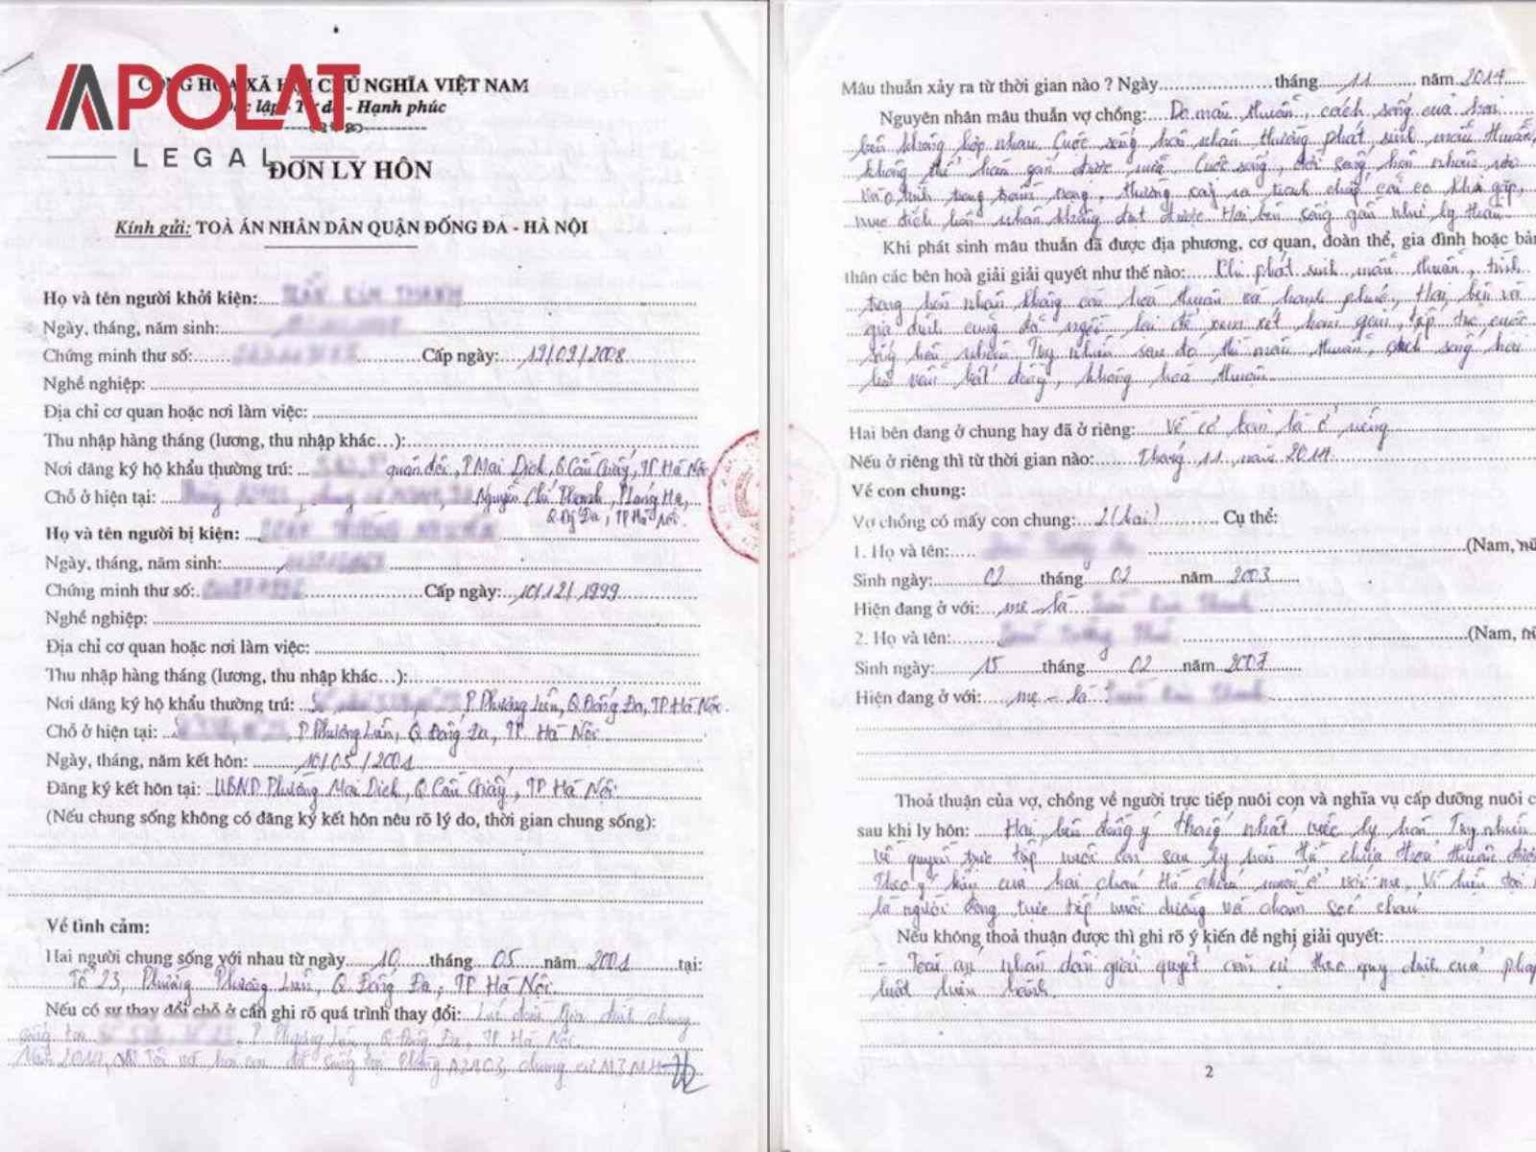 APOLAT
LEGAL
CỘNG HÒA XÃ HỘI CHỦ NGHĨA VIỆT NAM
Độc lập - Tự do - Hạnh phúc
ĐƠN LY HÔN
Kính gửi: TOÀ ÁN NHÂN DÂN QUẬN ĐỐNG ĐA - HÀ NỘI
Họ và tên người khởi kiện:
Ngày, tháng, năm sinh:
Chứng minh thư số: Cấp ngày: 19/09/2008
Nghề nghiệp:
Địa chỉ cơ quan hoặc nơi làm việc:
Thu nhập hàng tháng (lương, thu nhập khác...):
Nơi đăng ký hộ khẩu thường trú: quân đội, P. Mai Dịch, Q. Cầu Giấy, TP Hà Nội
Chỗ ở hiện tại: Nguyễn Chí Thanh, P. Láng Hạ,
Q. Đống Đa, TP Hà Nội.
Họ và tên người bị kiện:
Ngày, tháng, năm sinh:
Chứng minh thư số: Cấp ngày: 10/12/1999
Nghề nghiệp:
Địa chỉ cơ quan hoặc nơi làm việc:
Thu nhập hàng tháng (lương, thu nhập khác...):
Nơi đăng ký hộ khẩu thường trú: P. Phương Liên, Q. Đống Đa, TP Hà Nội.
Chỗ ở hiện tại: P. Phương Liên, Q. Đống Đa, TP. Hà Nội
Ngày, tháng, năm kết hôn: 10/05/2001
Đăng ký kết hôn tại: UBND Phường Mai Dịch, Q. Cầu Giấy, TP Hà Nội.
(Nếu chung sống không có đăng ký kết hôn nêu rõ lý do, thời gian chung sống):
Về tình cảm:
Hai người chung sống với nhau từ ngày 10 tháng 05 năm 2001 tại:
Tổ 23, Phường Phương Liên, Q. Đống Đa, TP Hà Nội.
Nếu có sự thay đổi chỗ ở cần ghi rõ quá trình thay đổi: Lúc đầu gia đình chung
sống tại P. Phương Liên, Q. Đống Đa, TP. Hà Nội.
hai con
Mâu thuẫn xảy ra từ thời gian nào ? Ngày tháng 11 năm 2014
Nguyên nhân mâu thuẫn vợ chồng: Do mâu thuẫn, cách sống của hai
bên không hợp nhau. Cuộc sống hôn nhân thường phát sinh mâu thuẫn,
không thể hàn gắn được nữa. Cuộc sống, đời sống hôn nhân rơi
vào tình trạng trầm trọng, thường xảy ra tranh chấp cãi cọ khi gặp,
mục đích hôn nhân không đạt được. Hai bên sống gần như ly thân.
Khi phát sinh mâu thuẫn đã được địa phương, cơ quan, đoàn thể, gia đình hoặc bản
thân các bên hoà giải giải quyết như thế nào: Khi phát sinh mâu thuẫn, tình
trạng hôn nhân không còn hoà thuận và hạnh phúc, Hai bên và
gia đình cũng đã ngồi lại để xem xét hàn gắn, tiếp tục cuộc
sống hôn nhân. Tuy nhiên sau đó thì mâu thuẫn, cách sống hai
bên vẫn bất đồng, không hoà thuận.
Hai bên đang ở chung hay đã ở riêng: Về cơ bản là ở riêng
Nếu ở riêng thì từ thời gian nào: Tháng 11, năm 2014.
Về con chung:
Vợ chồng có mấy con chung: 2 (hai) Cụ thể:
1. Họ và tên: (Nam, nữ
Sinh ngày: 02 tháng 02 năm 2003
Hiện đang ở với: mẹ là
2. Họ và tên: (Nam, nữ
Sinh ngày: 15 tháng 02 năm 2007
Hiện đang ở với: mẹ - là
Thoả thuận của vợ, chồng về người trực tiếp nuôi con và nghĩa vụ cấp dưỡng nuôi c
sau khi ly hôn: Hai bên đồng ý thống nhất việc ly hôn. Tuy nhiên
về quyền trực tiếp nuôi con sau ly hôn thì chưa thoả thuận được
Theo ý kiến của hai cháu muốn ở với mẹ. Vì hiện tại
là người đang trực tiếp nuôi dưỡng và chăm sóc cháu
Nếu không thoả thuận được thì ghi rõ ý kiến đề nghị giải quyết:
- Toà án nhân dân giải quyết căn cứ theo quy định của pháp
luật hiện hành.
2